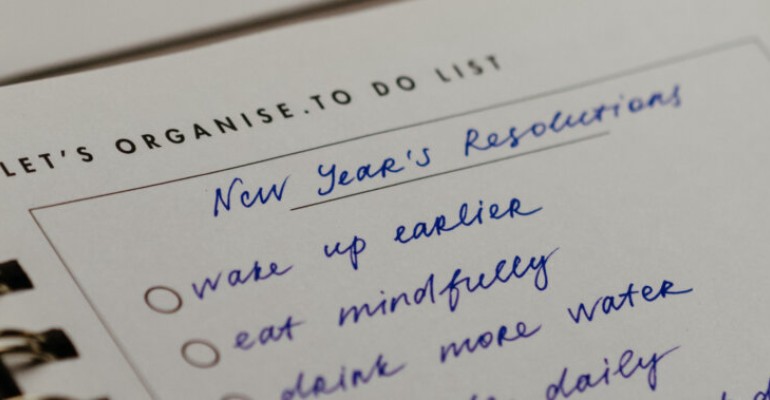 LET'S ORGANISE.TO DO LIST
New Year's Resolutions
wake up earlier
eat mindfully
drink more water
daily